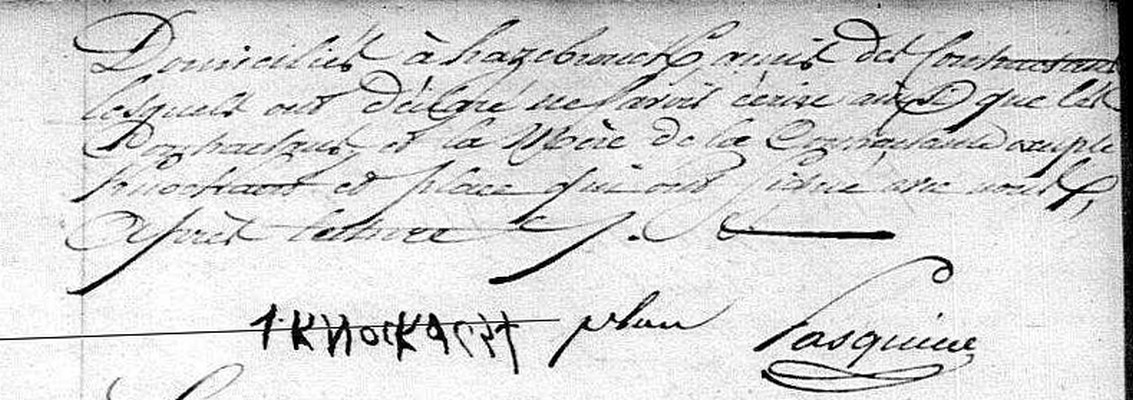 Domiciliés à hazebrouck amis des Contractans
lesquels ont déclaré ne savoir écrire ainsi que les
Contractans et la Mère de la Contractante excepté
Knockaert et place qui ont signé avec nous
Après lecture
KNOCKAERT place Pasquine